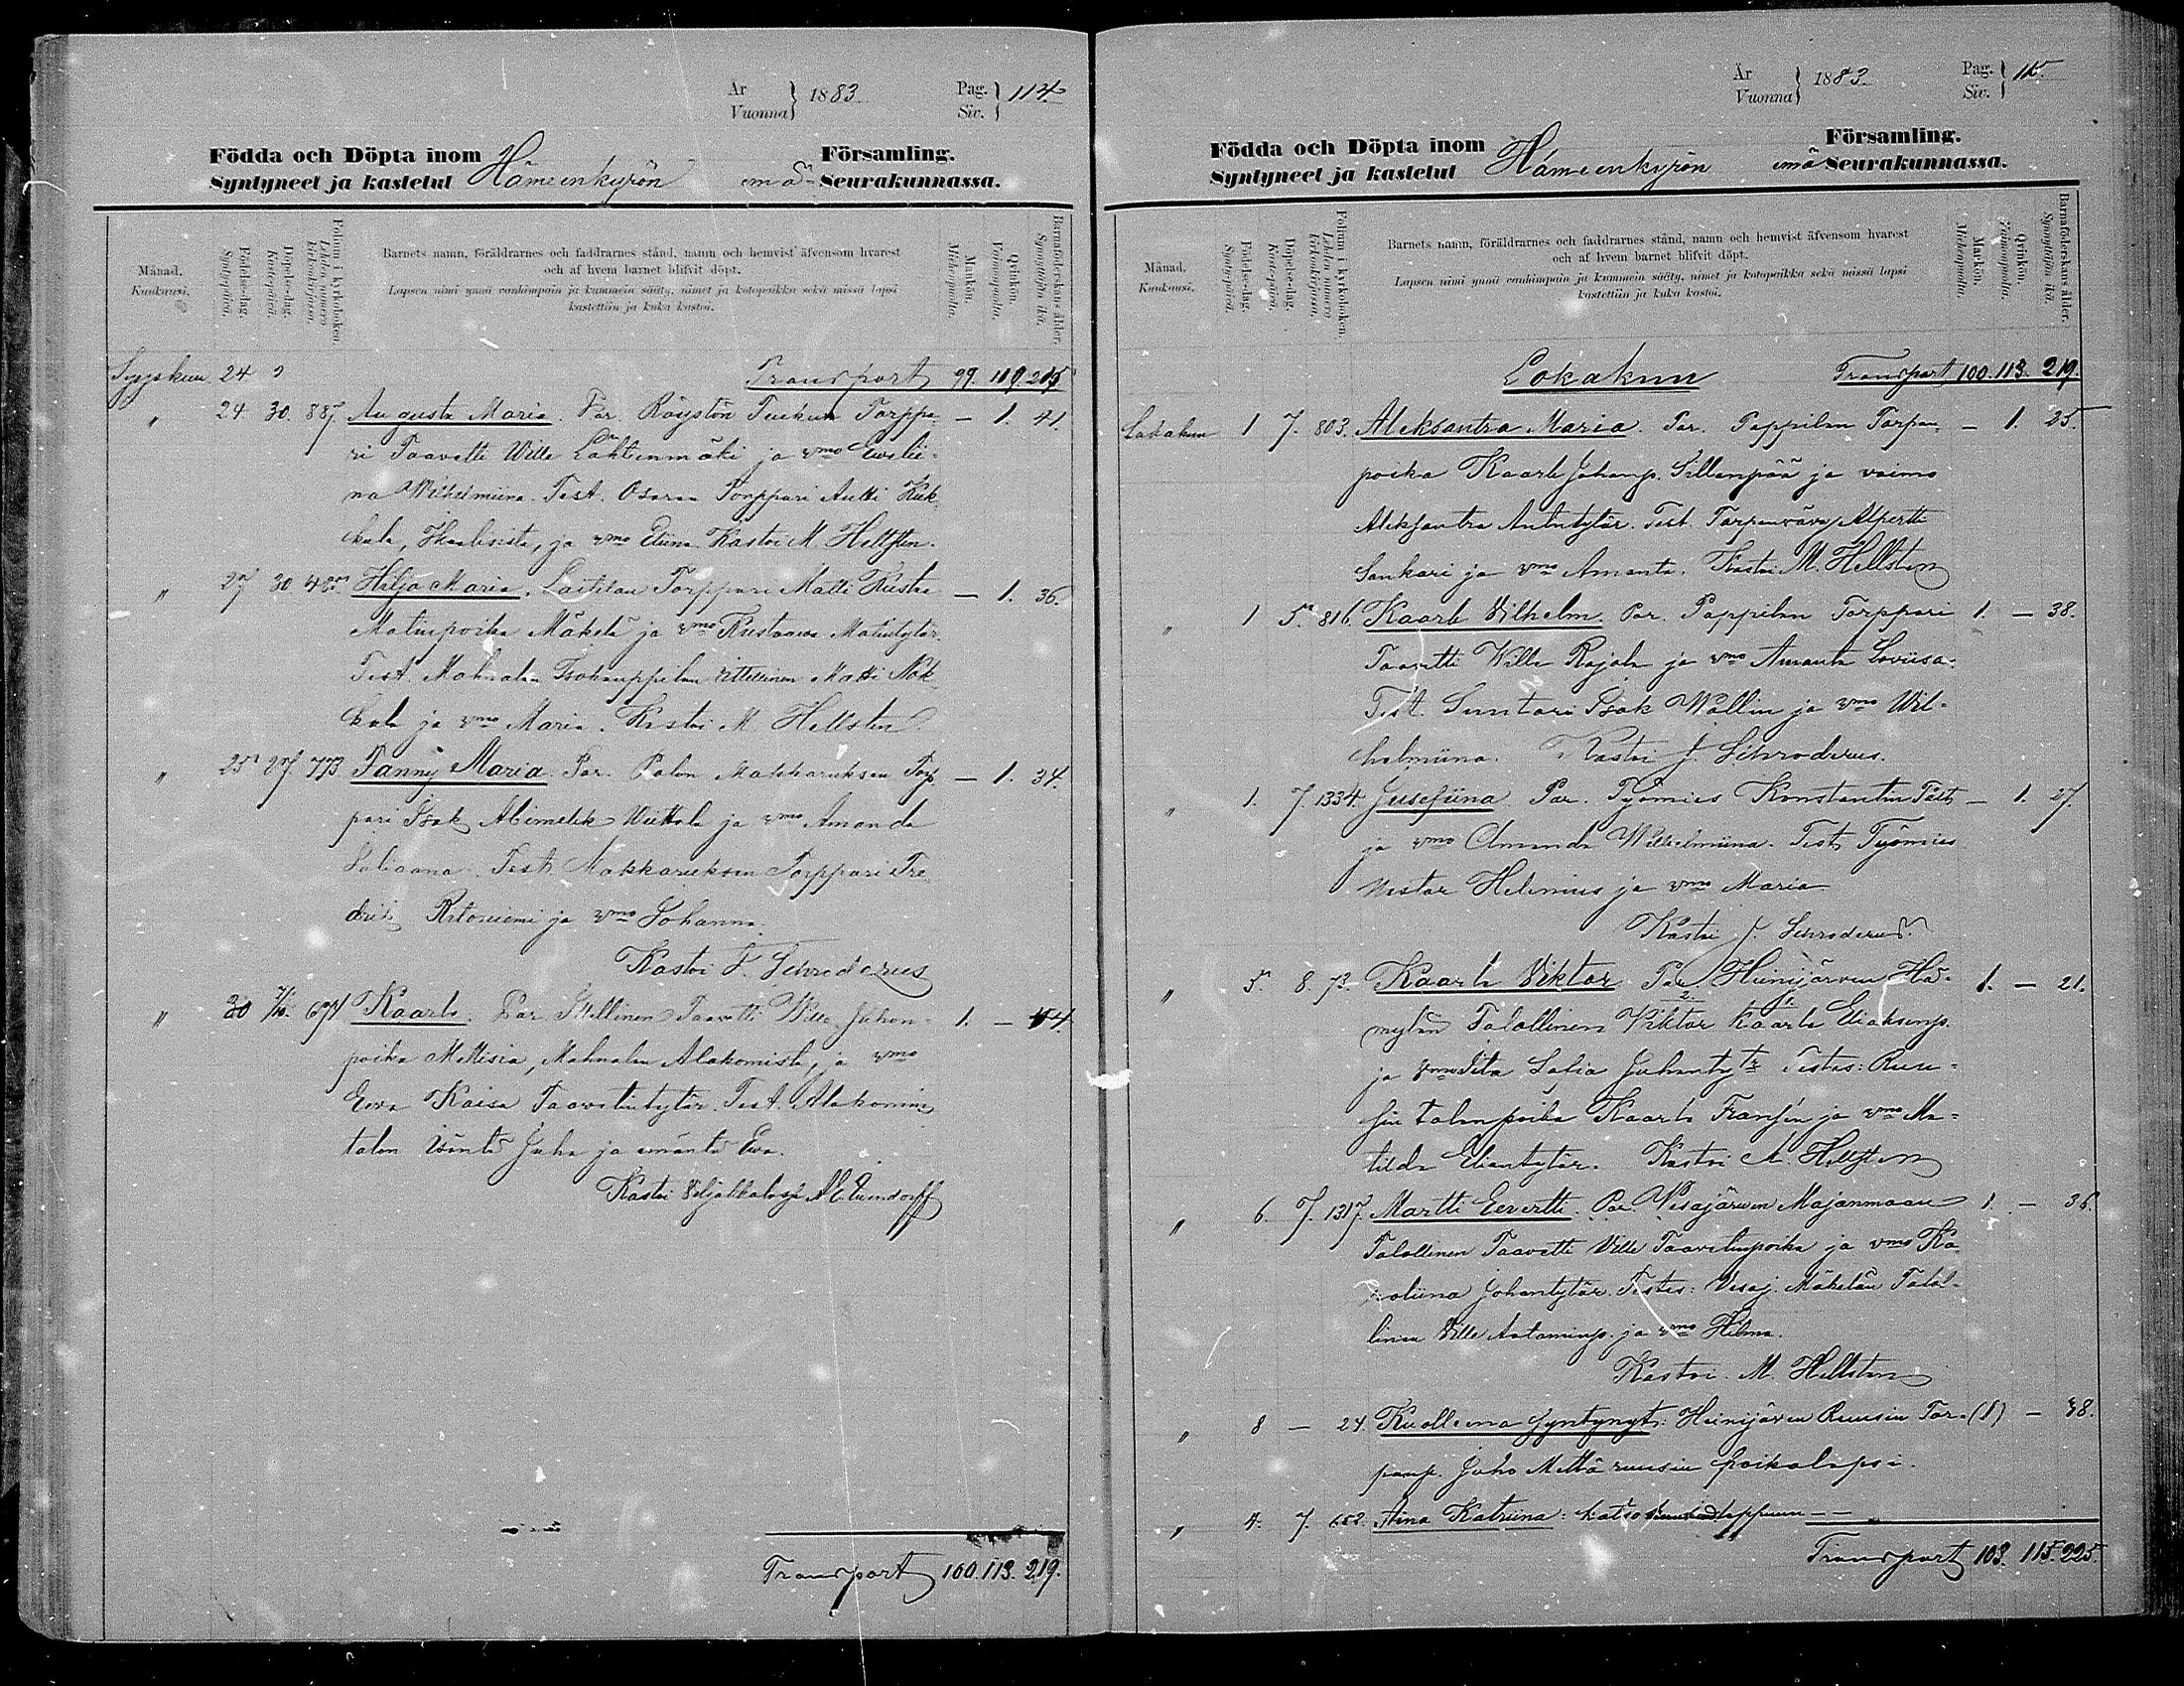 År
Vuonna } 1883 Pag.
Siv. } 114.
Födda och Döpta inom Hämeenkyrön emä- Församling.
Syntyneet ja kastetut Seurakunnassa.
Månad.
Kuukausi.
Födelse-dag.
Syntypäivä.
Döpelse-dag.
Kastepäivä.
Folium i kyrkoboken.
Lehden numero kirkonkirjassa.
Barnets namn, föräldrarnes och faddrarnes stånd, namn och hemvist äfvensom hvarest
och af hvem barnet blifvit döpt.
Lapsen nimi ynnä vanhimpain ja kummein sääty, nimet ja kotopaikka sekä missä lapsi
kastettiin ja kuka kastoi.
Mankön.
Miehenpuolia.
Qvinkön.
Vaimonpuolia.
Barnaföderskans ålder.
Synnyttäjän ikä.
Syyskuu 24 Transport 99. 110. 215
" 24. 30. 887. Augusta Maria. Par. Röystön Tuckun Torppa- — 1. 41.
ri Taavetti Wille Lahtenmäki ja vmo Evelii-
na Wilhelmiina. Test. Osaran Torppari Antti Kuk-
kula, Ikalisista, ja vmo Eliina. Kastoi M. Hellsten.
" 27 30 Hilja Maria. Laitilan Torppari Matti Kusta — 1. 36.
Matinpoika Mäkelä ja vmo Kustaava Matintytär.
Test. Mahnalan Isohanppilan ittellinen Matti Nok-
kala ja vmo Maria. Kastoi M. Hellsten.
" 25 27. 773 Fanny Maria. Par. Palon Makkaruksen Torp- — 1. 34.
pari Isak Abimelek Wiettala ja vmo Amanda
Juliaana. Test. Makkaruksen Torppari Fre-
drik Ritoniemi ja vmo Johanna.
Kastoi J. Schroderus
" 30 7/10. 671 Kaarlo. Par. Itellinen Taavetti Wille Juhon- 1. — 44
poika Mettisia, Mahnalan Alakomista, ja vmo
Eeva Kaisa Taavetintytär. Test. Alakomin
talon isäntä Juha ja emäntä Eva.
Kastoi Viljakkalassa
Transport 100. 113. 219.
År
Vuonna } 1883 Pag.
Siv. } 115.
Födda och Döpta inom Hämeenkyrön emä Församling.
Syntyneet ja kastetut Seurakunnassa.
Månad.
Kuukausi.
Födelse-dag.
Syntypäivä.
Döpelse-dag.
Kastepäivä.
Folium i kyrkoboken.
Lehden numero kirkonkirjassa.
Barnets namn, föräldrarnes och faddrarnes stånd, namn och hemvist äfvensom hvarest
och af hvem barnet blifvit döpt.
Lapsen nimi ynnä vanhimpain ja kummein sääty, nimet ja kotopaikka sekä missä lapsi
kastettiin ja kuka kastoi.
Mankön.
Miehenpuolia.
Qvinkön.
Vaimonpuolia.
Barnaföderskans ålder.
Synnyttäjän ikä.
Lokakuu Transport 100. 113. 219.
Lokakuu 1 7. 803. Aleksantra Maria. Par. Pappilan Torpan- — 1. 25.
poika Kaarle Johanp. Sillanpää ja vaimo
Aleksantra Antintytär. Test. Torpanvävy Alpertti
Sankari ja vmo Amanta. Kastoi M. Hellsten
" 1 5. 816 Kaarle Vilhelm. Par. Pappilan Torppari 1. — 38.
Taavetti Wille Rajala ja vmo Amanta Loviisa.
Test. Suntari Isak Wallin ja vmo Wil-
helmiina. Kastoi J. Schroderus.
" 1. 7. 1334. Jusefiina. Par. Työmies Konstantin — 1. 27
ja vmo Amanda Wilhelmiina. Test. Työmies
Nestor Helenius ja vmo Maria
Kastoi J. Schroderus.
" 5. 8. 73. Kaarlo Viktor. Par. Heinijärven Hä- 1. — 21.
mylän Talollinen Viktor Kaarlo Eliaksenp.
ja vmo Iita Sofia Juhantytr. Testes: Ruu-
sin talonpoika Kaarlo Fransin ja vmo Ma-
tilda Eliantytär. Kastoi M. Hellsten
" 6. 7. 1317. Martti Evertti. Par. Vesajärven Majanmaan 1. — 36.
Talollinen Taavetti Ville Taavetinpoika ja vmo Ka-
roliina Johantytär. Testes: Vesaj. Mäkelän Talol-
linen Ville Antoninp. ja vmo Hilma.
Kastoi M. Hellsten
" 8 — 24. Kuolleena syntynyt: Heinijärven Ruusin Tor- (1) — 38.
panp. Juho Mettäruusin poikalapsi.
" 4. 7. 652. Aina Katriina: katso — —
Transport 103. 115. 225.